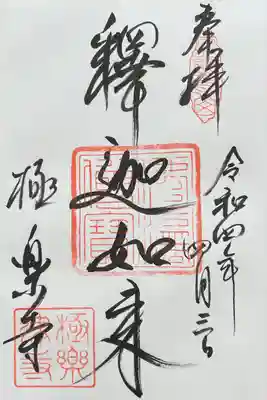 奉拝
令和四年
四月三日
釋迦如来
極楽寺
佛法僧寶
極樂寺